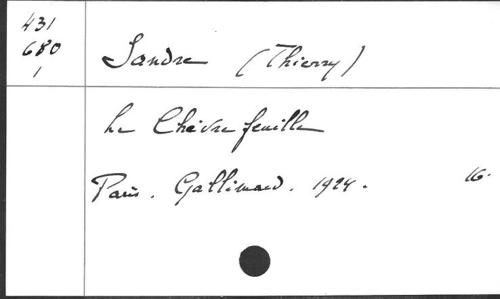 431
680
1
Sandre (Thierry)
Le Chèvrefeuille
Paris. Gallimard. 1924.
16.